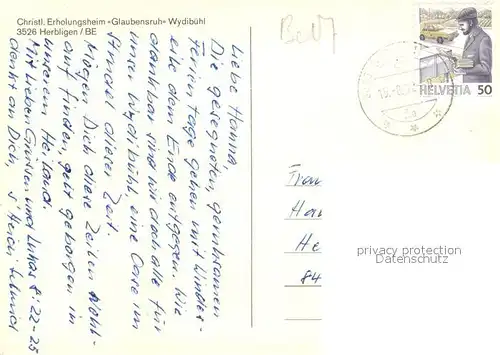 Christl. Erholungsheim «Glaubensruh» Wydibühl
3526 Herbligen / BE
BeW
HELVETIA 50
Liebe Hanna,
Die gesegneten, gemeinsamen
Ferientage gehen mit Windes-
eile dem Ende entgegen. Wie
dankbar sind wir doch alle für
unser Wydibühl eine Oase im
Strudel dieser Zeit.
Mögen Dich diese Zeilen wohl-
auf finden, gelt geborgen im
unserem Heiland.
Mit lieben Grüssen und Lukas 8: 22-25
denkt an Dich, s'Heidi
Frau
Han
He
84
privacy protection
Datenschutz